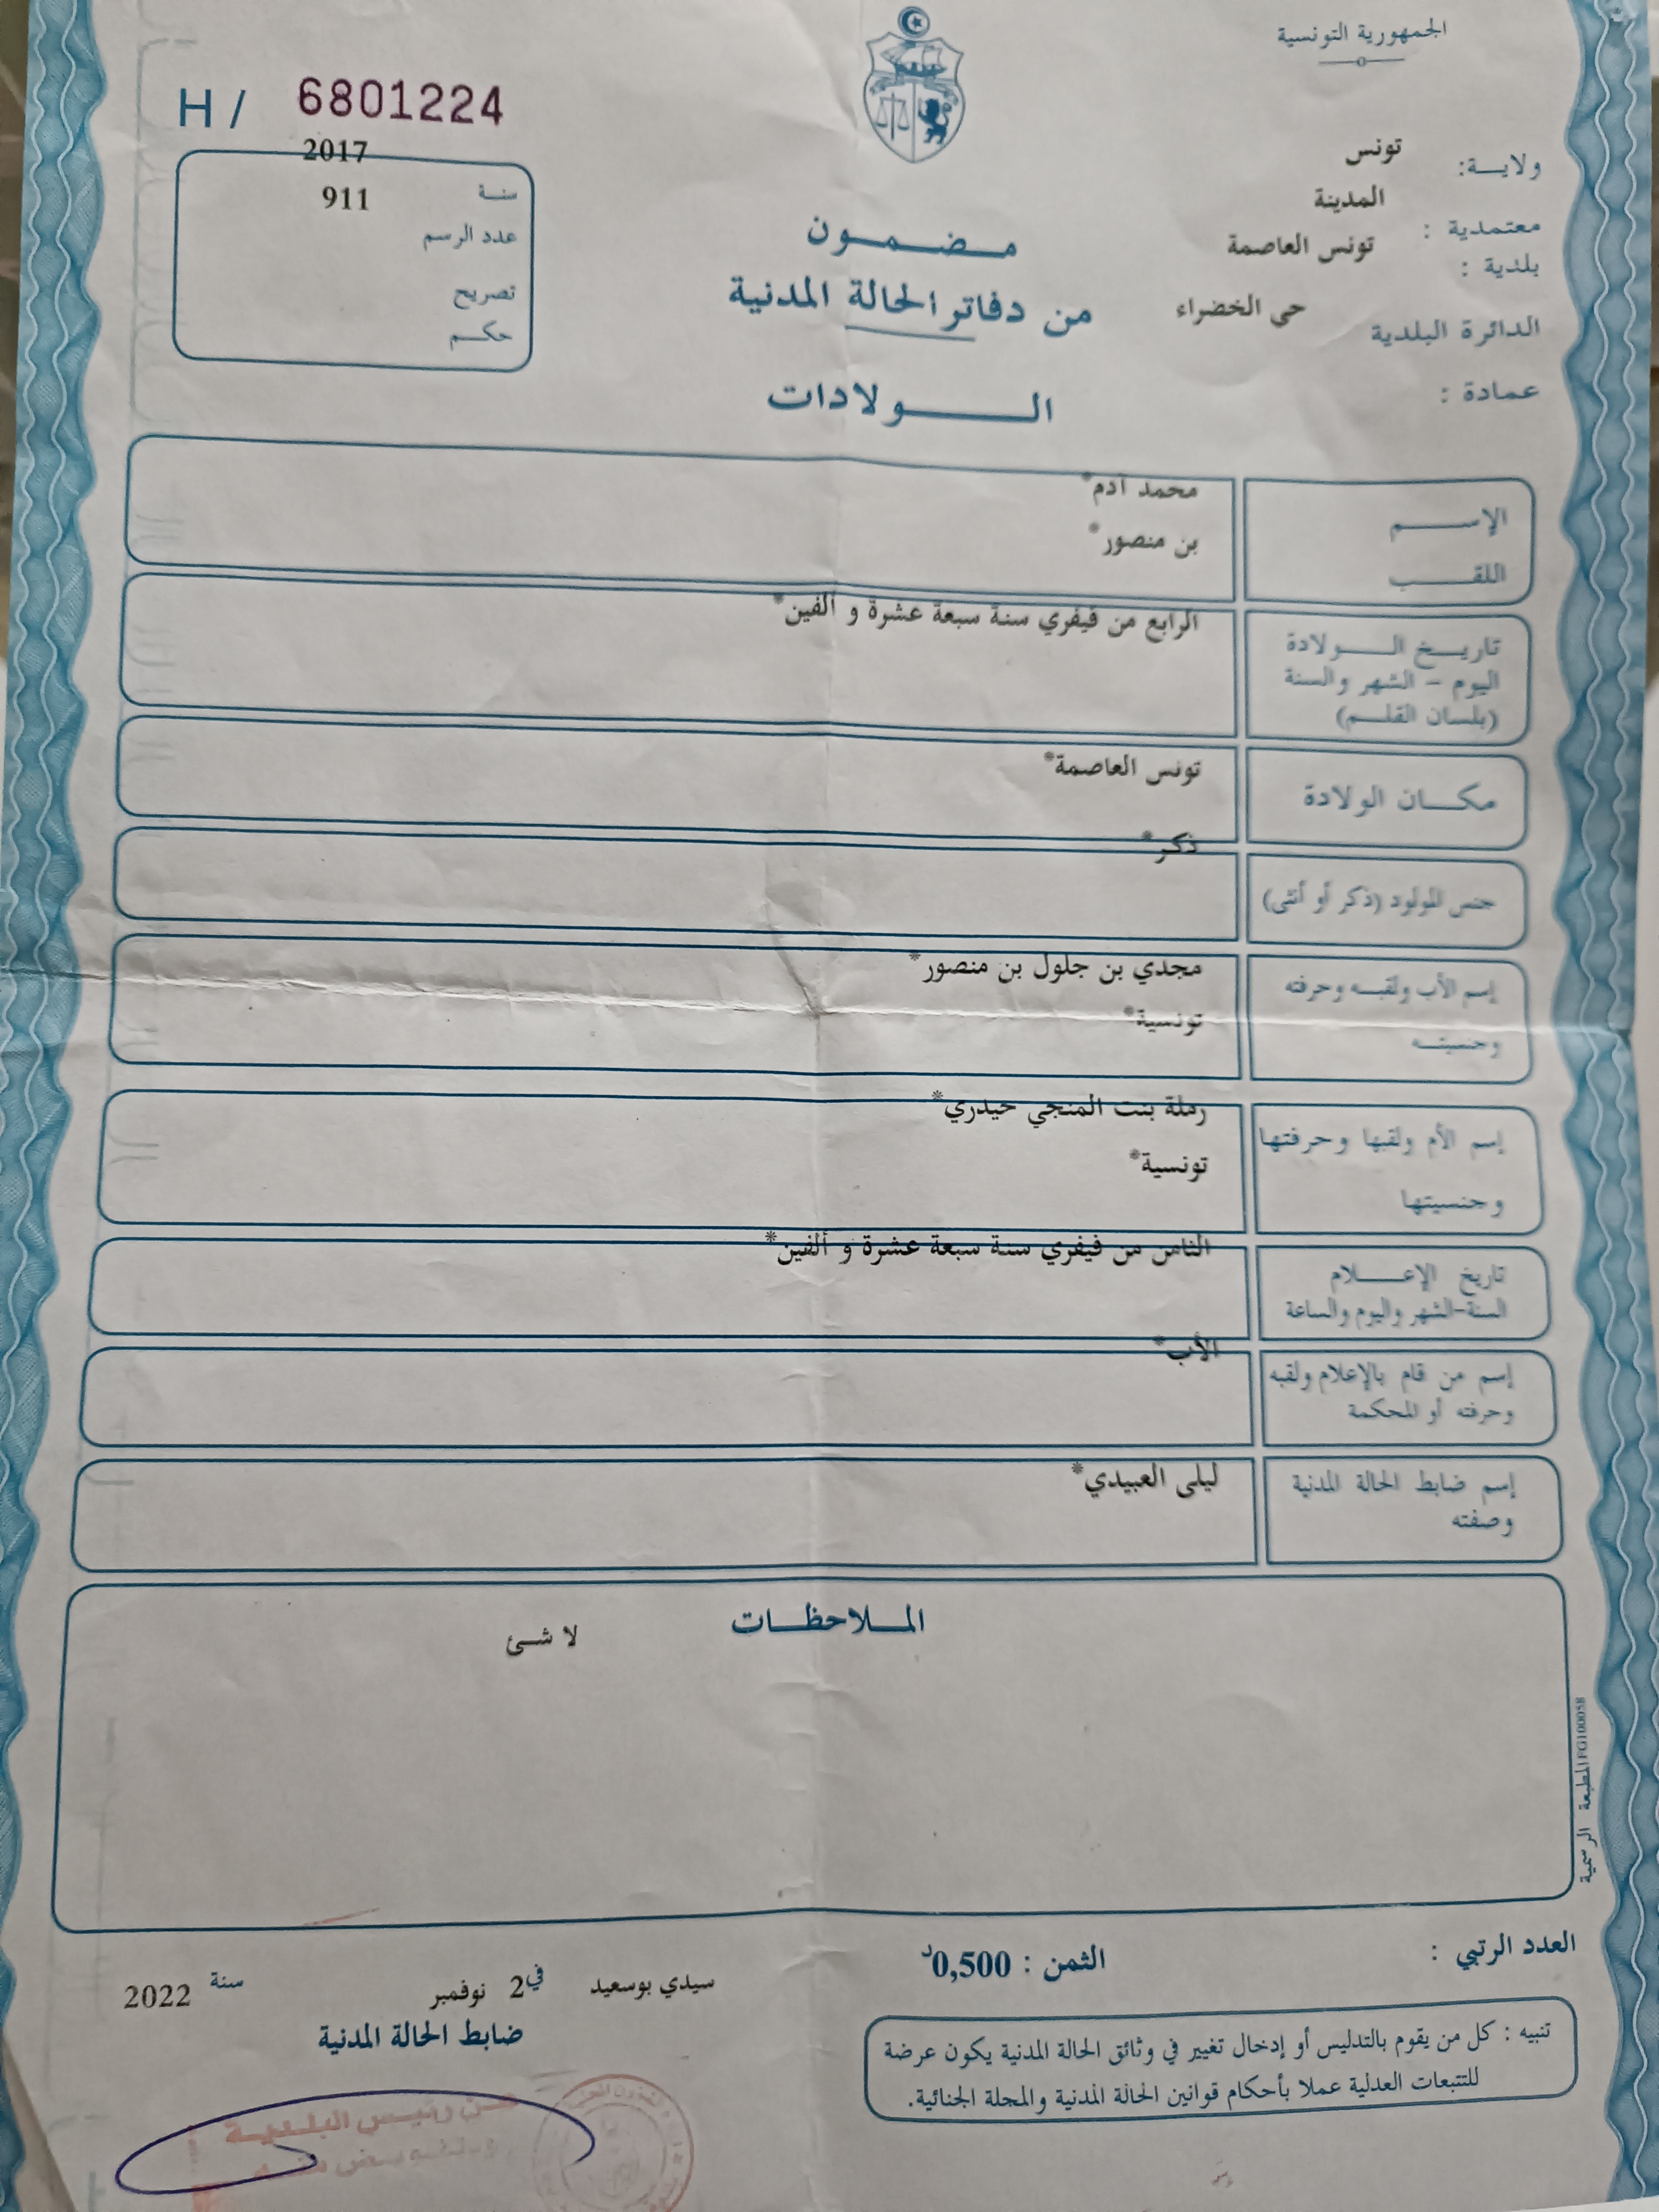 الجمهورية التونسية
H / 6801224
ولايـــة: تونس
معتمدية : المدينة
بلدية : تونس العاصمة
الدائرة البلدية حى الخضراء
عمادة :
2017
سنــة
911
عدد الرسم
تصريح
حكـــم
مـــضـــمـــون
من دفاتر الحالة المدنية
الـــــولادات
الإســــــم محمد آدم*
اللقــــــب بن منصور*
تاريـــخ الـــــولادة الرابع من فيفري سنة سبعة عشرة و ألفين*
اليوم – الشهر والسنة
(بلسان القلـــم)
مكـــان الولادة تونس العاصمة*
جنس المولود (ذكر أو أنثى) ذكر*
إسم الأب ولقبــه وحرفته مجدي بن جلول بن منصور*
وجنسيتــه تونسية*
إسم الأم ولقبها وحرفتها رملة بنت المنجي حيدري*
وجنسيتها تونسية*
تاريخ الإعــــلام الثامن من فيفري سنة سبعة عشرة و ألفين*
السنة-الشهر واليوم والساعة
إسم من قام بالإعلام ولقبه الأب*
وحرفته أو المحكمة
إسم ضابط الحالة المدنية ليلى العبيدي*
وصفته
الملاحظـــات
لا شئ
المطبعة الرسمية
العدد الرتبي :
الثمن : 0,500د
سيدي بوسعيد في 2 نوفمبر سنة 2022
ضابط الحالة المدنية
تنبيه : كل من يقوم بالتدليس أو إدخال تغيير في وثائق الحالة المدنية يكون عرضة
للتتبعات العدلية عملا بأحكام قوانين الحالة المدنية والمجلة الجنائية.
عـن رئيس البلديـة
وبتفويض منه